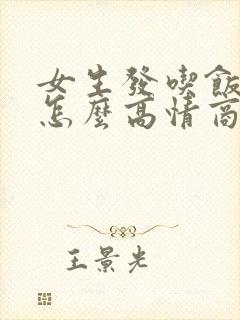 女生發喫飯
怎麼高情商
王景光